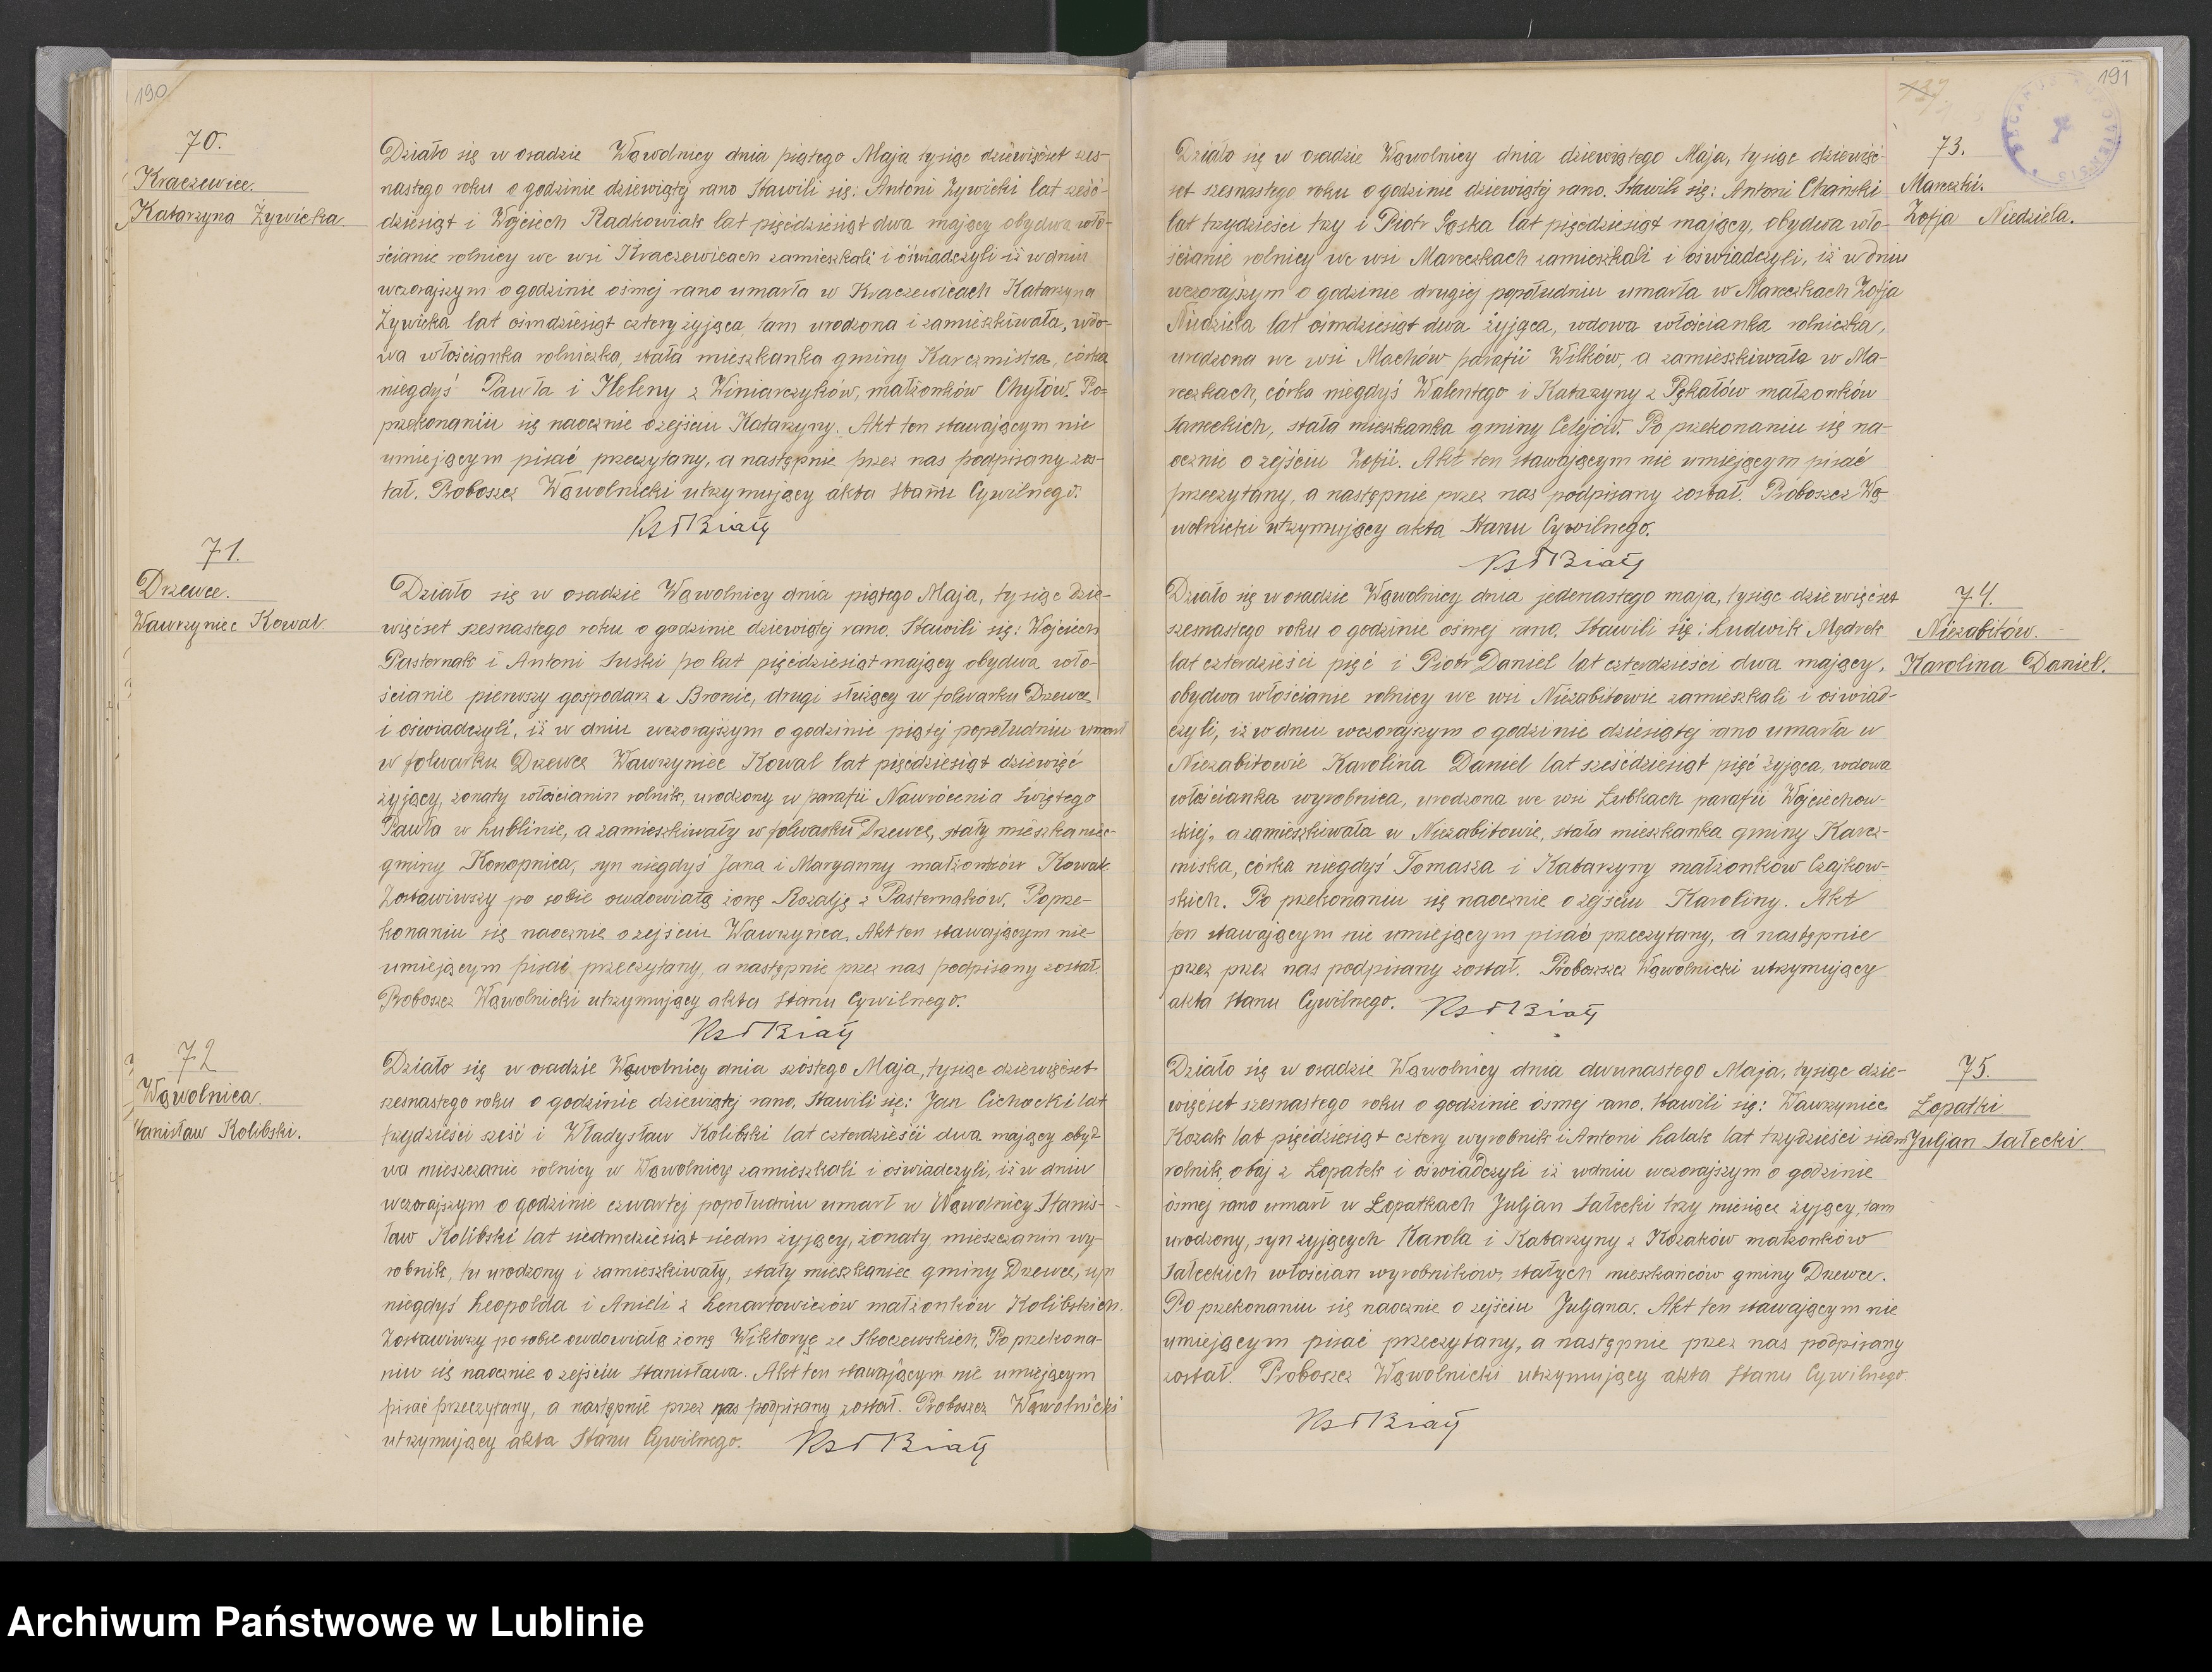 190
70.
Kraczewice.
Katarzyna Żywicka.
Działo się w osadzie Wąwolnicy dnia piątego Maja tysiąc dziewięćset szes-
nastego roku o godzinie dziewiątej rano Stawili się: Antoni Żywicki lat sześć-
dziesiąt i Wojciech Radkowiak lat pięćdziesiąt dwa mający obydwa wło-
ścianie rolnicy we wsi Kraczewicach zamieszkali i oświadczyli iż w dniu
wczorajszym o godzinie ósmej rano umarła w Kraczewicach Katarzyna
Żywicka lat ośmdziesiąt cztery żyjąca, tam urodzona i zamieszkiwała, wdo-
wa włościanka rolniczka, stała mieszkanka gminy Karczmiska, córka
niegdyś Pawła i Heleny z Winiarczyków, małżonków Chyłów. Po-
przekonaniu się naocznie o zejściu Katarzyny. Akt ten stawającym nie
umiejącym pisać przeczytany, a następnie przez nas podpisany zos-
tał. Proboszcz Wąwolnicki utrzymujący akta Stanu Cywilnego.
Ks J Biały
71.
Drzewce.
Wawrzyniec Kowal
Działo się w osadzie Wąwolnicy dnia piątego Maja, tysiąc dzie-
więćset szesnastego roku o godzinie dziewiątej rano. Stawili się: Wojciech
Pasternak i Antoni Suski po lat pięćdziesiąt mający obydwa wło-
ścianie pierwszy gospodarz z Bronic, drugi służący w folwarku Drzewce
i oświadczyli, iż w dniu wczorajszym o godzinie piątej popołudniu umarł
w folwarku Drzewce Wawrzyniec Kowal lat pięćdziesiąt dziewięć
żyjący, żonaty włościanin rolnik, urodzony w parafii Nawrócenia Świętego
Pawła w Lublinie, a zamieszkiwały w folwarku Drzewce, stały mieszkaniec
gminy Konopnica, syn niegdyś Jana i Maryanny małżonków Kowal.
Zostawiwszy po sobie owdowiałą żonę Rozalję z Pasternaków. Poprze-
konaniu się naocznie o zejściu Wawrzyńca. Akt ten stawającym nie-
umiejącym pisać przeczytany, a następnie przez nas podpisany został.
Proboszcz Wąwolnicki utrzymujący akta Stanu Cywilnego.
Ks J Biały
72
Wąwolnica.
Stanisław Kolibski.
Działo się w osadzie Wąwolnicy dnia szóstego Maja, tysiąc dziewięćset
szesnastego roku o godzinie dziewiątej rano. Stawili się: Jan Cichocki lat
trzydzieści sześć i Władysław Kolibski lat czterdzieści dwa mający obyd-
wa mieszczanie rolnicy w Wąwolnicy zamieszkali i oświadczyli, iż w dniu
wczorajszym o godzinie czwartej popołudniu umarł w Wąwolnicy Stanis-
ław Kolibski lat siedmdziesiąt siedm żyjący, żonaty, mieszczanin wy-
robnik, tu urodzony i zamieszkiwały, stały mieszkaniec gminy Drzewce, syn
niegdyś Leopolda i Anieli z Lenartowiczów małżonków Kolibskich.
Zostawiwszy po sobie owdowiałą żonę Wiktoryę ze Skoczewskich, Po przekona-
niu się naocznie o zejściu Stanisława. Akt ten stawającym nie umiejącym
pisać przeczytany, a następnie przez nas podpisany został. Proboszcz Wąwolnicki
utrzymujący akta Stanu Cywilnego. Ks J Biały
191
73.
Mareczki.
Zofja Niedziela.
Działo się w osadzie Wąwolnicy dnia dziewiątego Maja, tysiąc dziewięć-
set szesnastego roku o godzinie dziewiątej rano. Stawili się: Antoni Chański
lat trzydzieści trzy i Piotr Gąska lat pięćdziesiąt mający, obydwa wło-
ścianie rolnicy we wsi Mareczkach zamieszkali i oświadczyli, iż w dniu
wczorajszym o godzinie drugiej popołudniu umarła w Mareczkach Zofja
Niedziela lat ośmdziesiąt dwa żyjąca, wdowa włościanka rolniczka,
urodzona we wsi Machów parafii Wilków, a zamieszkiwała w Ma-
reczkach, córka niegdyś Walentego i Katarzyny z Pękałów małżonków
Saneckich, stała mieszkanka gminy Celejów. Po przekonaniu się na-
ocznie o zejściu Zofii. Akt ten stawającym nie umiejącym pisać
przeczytany, a następnie przez nas podpisany został. Proboszcz Wą-
wolnicki utrzymujący akta Stanu Cywilnego.
Ks J Biały
74.
Niezabitów.
Karolina Daniel.
Działo się w osadzie Wąwolnicy dnia jedenastego maja, tysiąc dziewięćset
szesnastego roku o godzinie ósmej rano. Stawili się: Ludwik Mędrek
lat czterdzieści pięć i Piotr Daniel lat czterdzieści dwa mający,
obydwa włościanie rolnicy we wsi Niezabitowie zamieszkali i oświad-
czyli, iż w dniu wczorajszym o godzinie dziesiątej rano umarła w
Niezabitowie Karolina Daniel lat sześćdziesiąt pięć żyjąca, wdowa
włościanka wyrobnica, urodzona we wsi Łubkach parafii Wojciechow-
skiej, a zamieszkiwała w Niezabitowie, stała mieszkanka gminy Karcz-
miska, córka niegdyś Tomasza i Katarzyny małżonków Czajkow-
skich. Po przekonaniu się naocznie o zejściu Karoliny. Akt
ten stawającym nie umiejącym pisać przeczytany, a następnie
przez przez nas podpisany został. Proboszcz Wąwolnicki utrzymujący
akta Stanu Cywilnego. Ks J Biały
75.
Łopatki
Juljan Sałecki.
Działo się w osadzie Wąwolnicy dnia dwunastego Maja, tysiąc dzie-
więćset szesnastego roku o godzinie ósmej rano. Stawili się: Wawrzyniec
Kozak lat pięćdziesiąt cztery wyrobnik i Antoni Lalak lat trzydzieści siedm
rolnik, obaj z Łopatek i oświadczyli iż wdniu wczorajszym o godzinie
ósmej rano umarł w Łopatkach Juljan Sałecki trzy miesiące żyjący, tam
urodzony, syn żyjących Karola i Katarzyny z Kozaków małżonków
Sałeckich włościan wyrobników, stałych mieszkańców gminy Drzewce.
Po przekonaniu się naocznie o zejściu Juljana. Akt ten stawającym nie
umiejącym pisać przeczytany, a następnie przez nas podpisany
został. Proboszcz Wąwolnicki utrzymujący akta Stanu Cywilnego.
Ks J Biały
Archiwum Państwowe w Lublinie